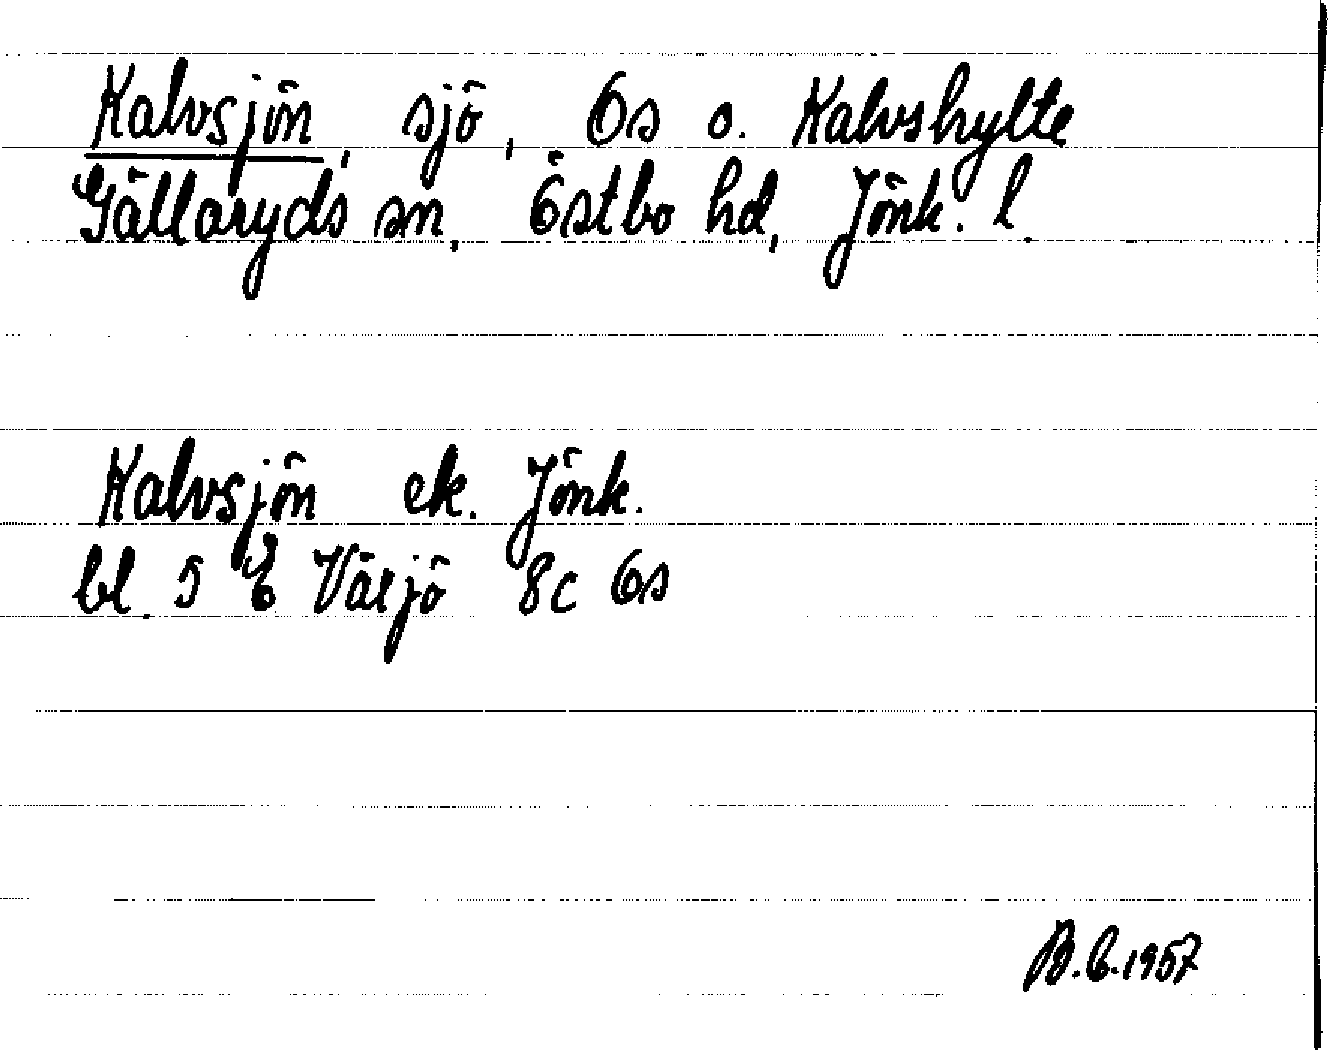 Kalvsjön, sjö, Ös o. Kalvshylte
Gällaryds sn, Östbo hd, Jönk. l.
Kalvsjön ek. Jönk.
bl. 5 E Värjö 8c Ös
B.C.1957